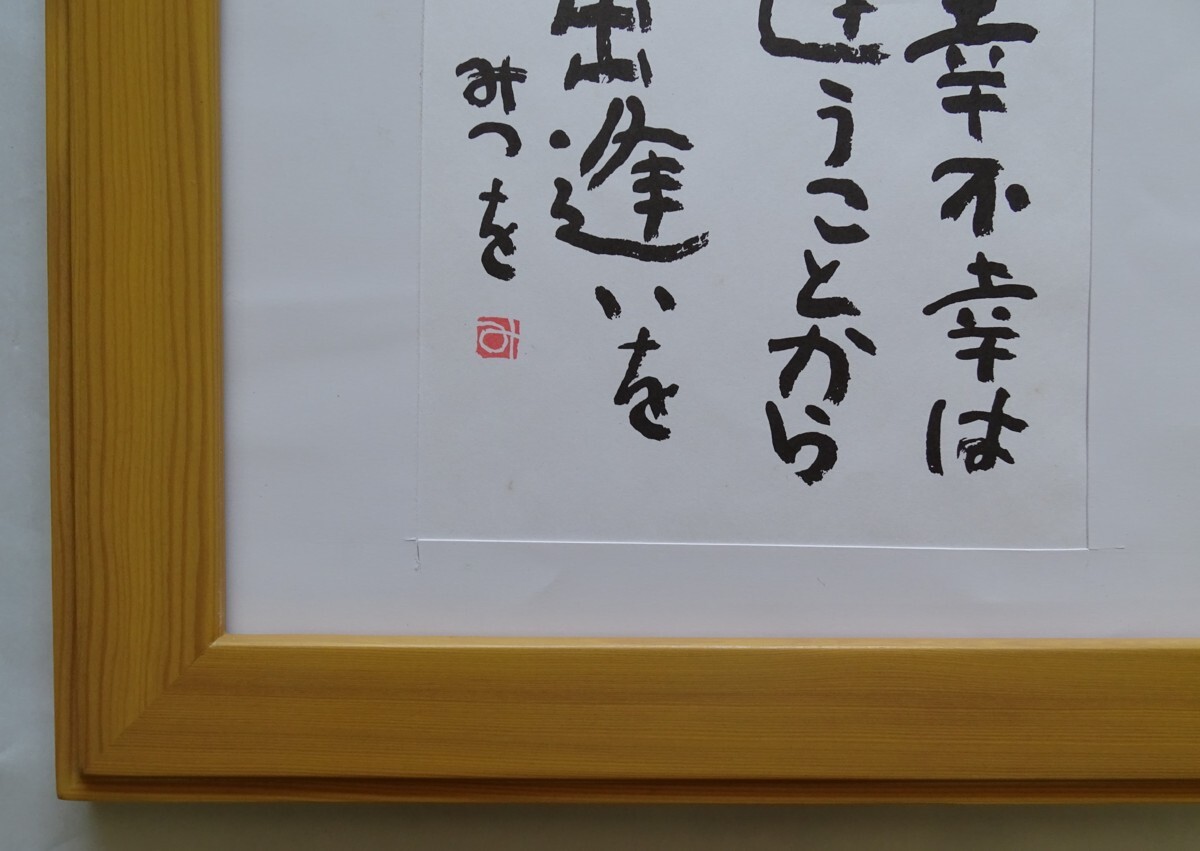 幸不幸は
逢うことから
出逢いを
みつを
み